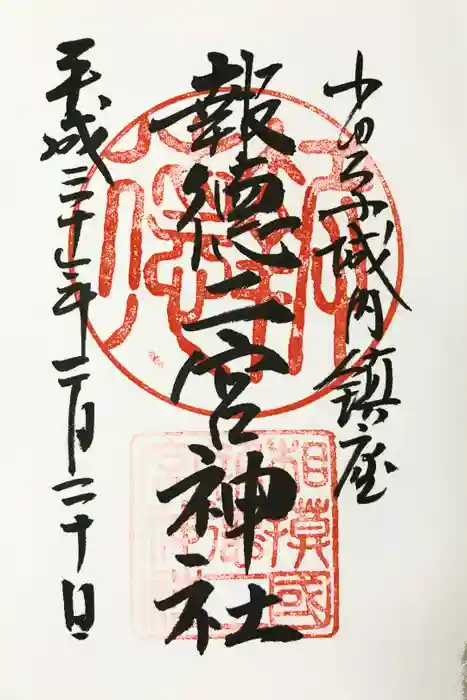 小田原城内鎮座
報徳二宮神社
平成三十一年一月二十日
相模國